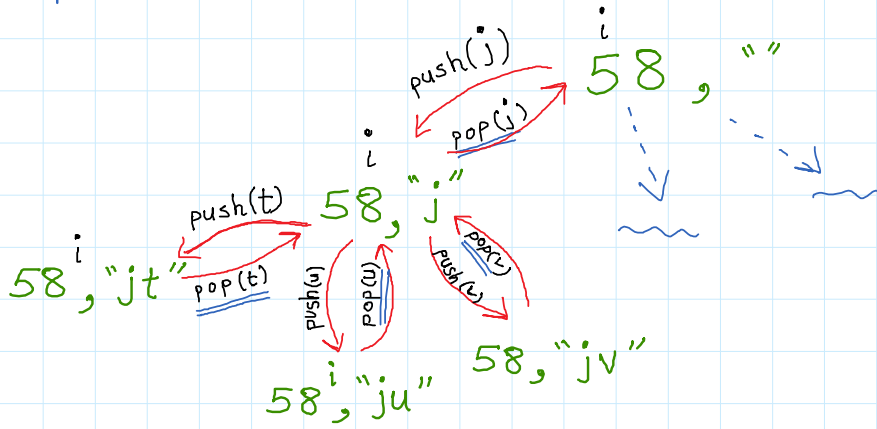 i
58 , " "
push(j)
pop(j)
i
58, "j"
push(t)
pop(t)
i
58, "jt"
push(u)
pop(u)
push(v)
pop(v)
58, "jv"
i
58, "ju"